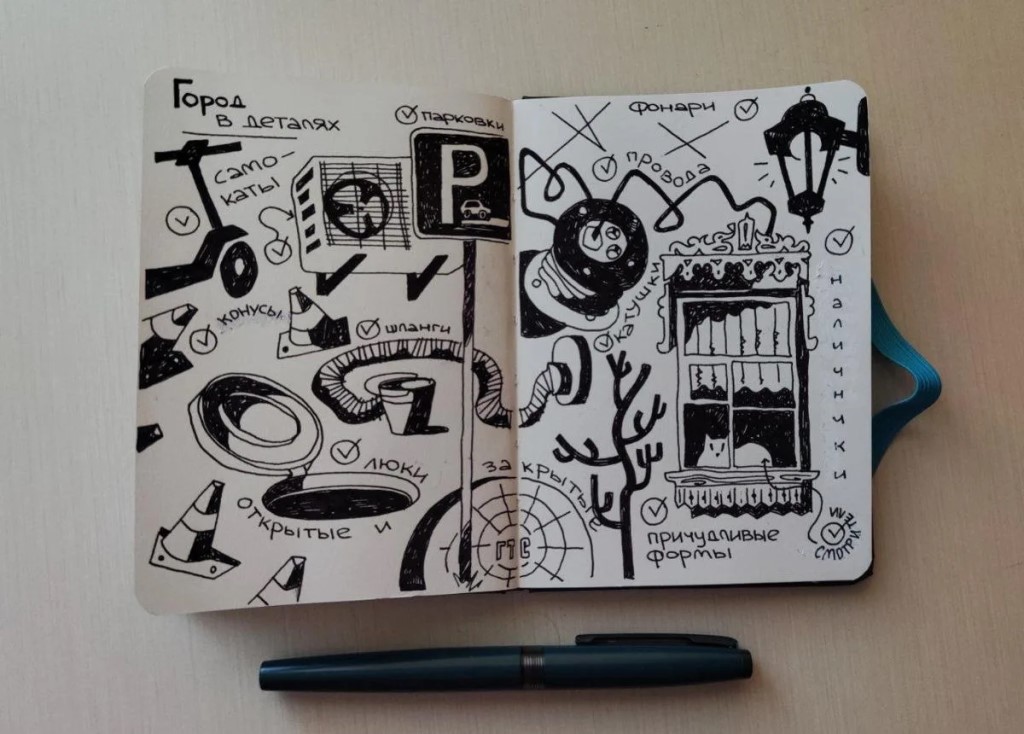 Город
в деталях
парковки
само-
каты
P
конусы
шланги
люки
открытые и
закрытые
ГТС
фонари
провода
катушки
наличники
причудливые
формы
смотрители